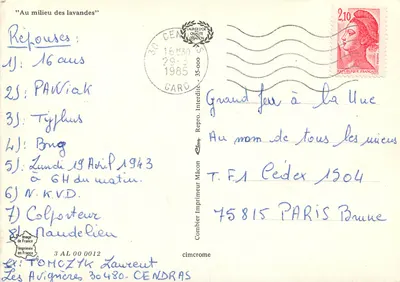 "Au milieu des lavandes"
Réponses :
1) : 16 ans
2) : PAWiak
3) : Typhus
4) : Bng
5) : Lundi 19 Avril 1943
à 6H du matin.
6) N.K.V.D.
7) Colporteur
8) Mandelieu
3 AL 00 0012
Ex: TOMCZYK Laurent
Les Avignères 30480- CENDRAS
30 CENDRAS
16H
29-
1985
GARD
Combier Imprimeur Mâcon
Repro. Interdite - 35-000
cimcrome
2,10
Grand Jeu à la Une
Au nom de tous les miens
T.F1 Cédex 1904
75815 PARIS Brune